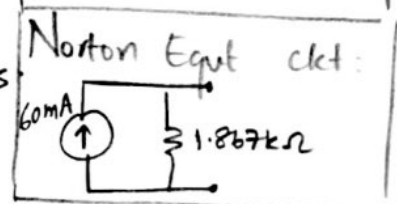 Norton Equt ckt:
s
60mA
↑
1.867kΩ